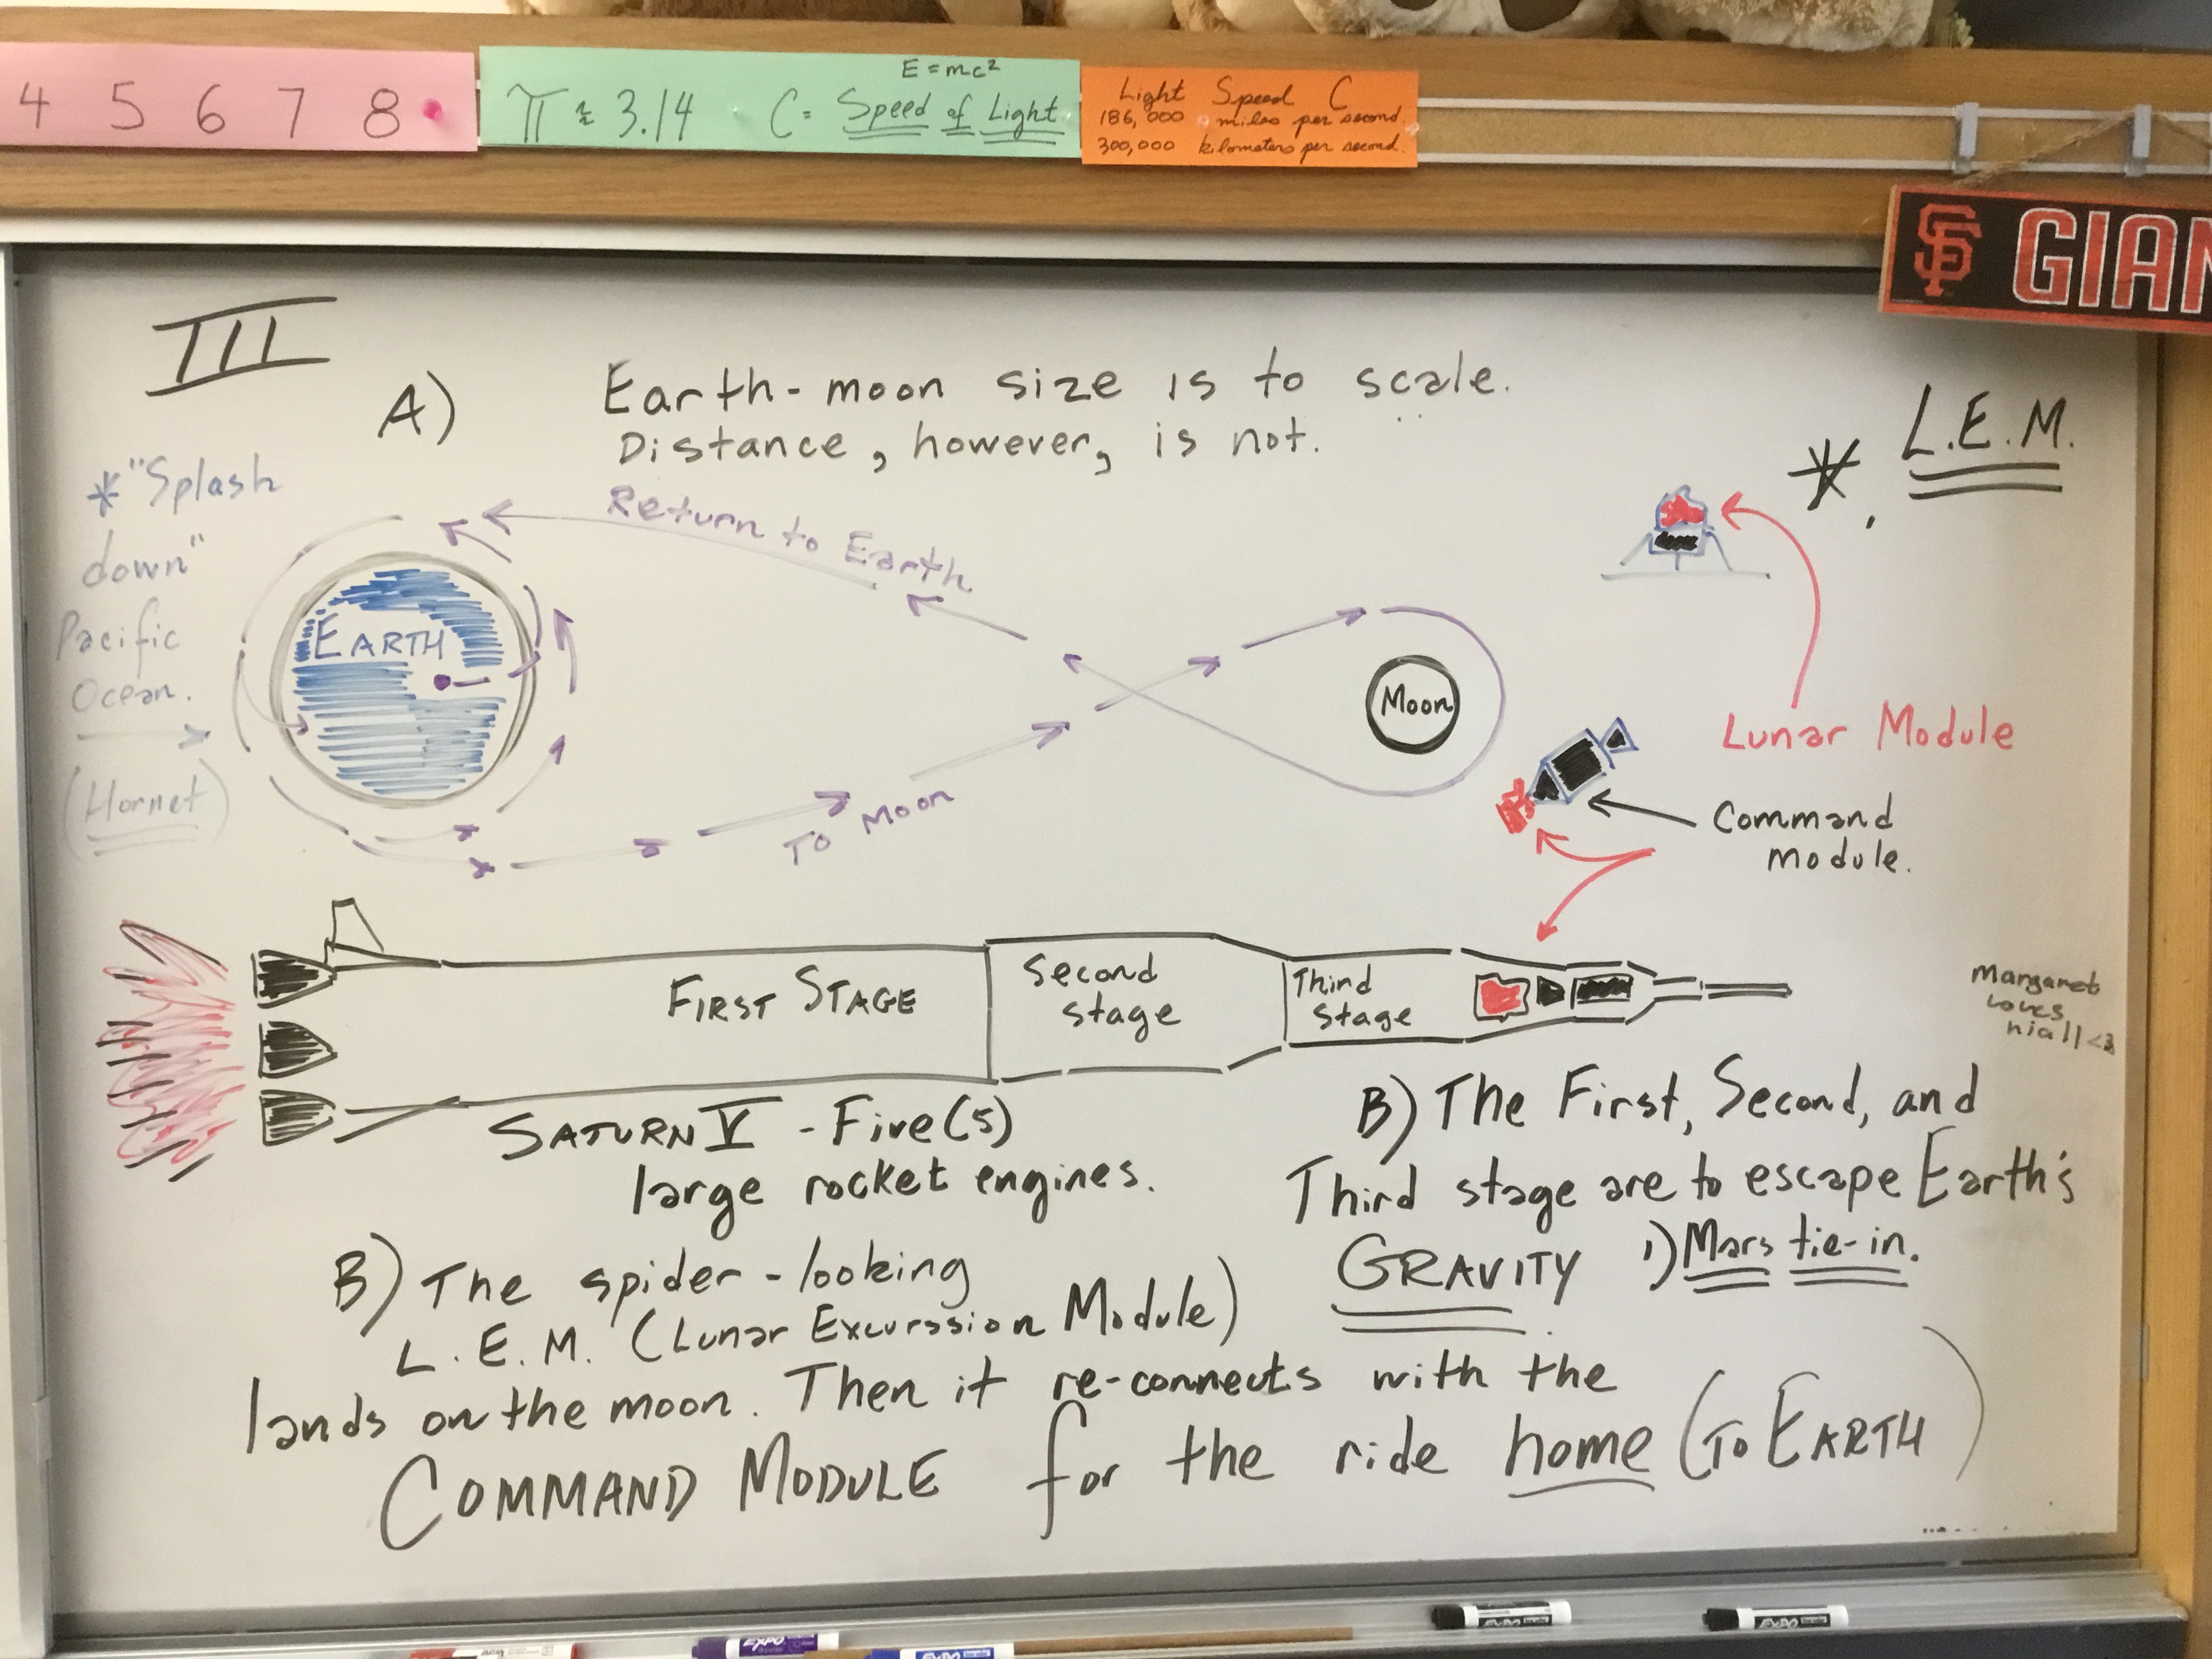 4 5 6 7 8
E = mc²
π ≈ 3.14 C = Speed of Light
Light Speed C
186,000 miles per second.
300,000 kilometers per second.
SF GIAN
III
A) Earth-moon size is to scale.
Distance, however, is not.
* L.E.M.
* "Splash
down"
Pacific
Ocean.
(Hornet)
Return to Earth
EARTH
Moon
To Moon
Lunar Module
Command
module.
FIRST STAGE
Second
stage
Third
stage
Margaret
loves
niall <3
SATURN V - Five (5)
large rocket engines.
B) The First, Second, and
Third stage are to escape Earth's
GRAVITY 1) Mars tie-in.
B) The spider-looking
L.E.M. (Lunar Excurssion Module)
lands on the moon. Then it re-connects with the
COMMAND MODULE for the ride home (TO EARTH)
EXPO
EXPO
EXPO
EXPO